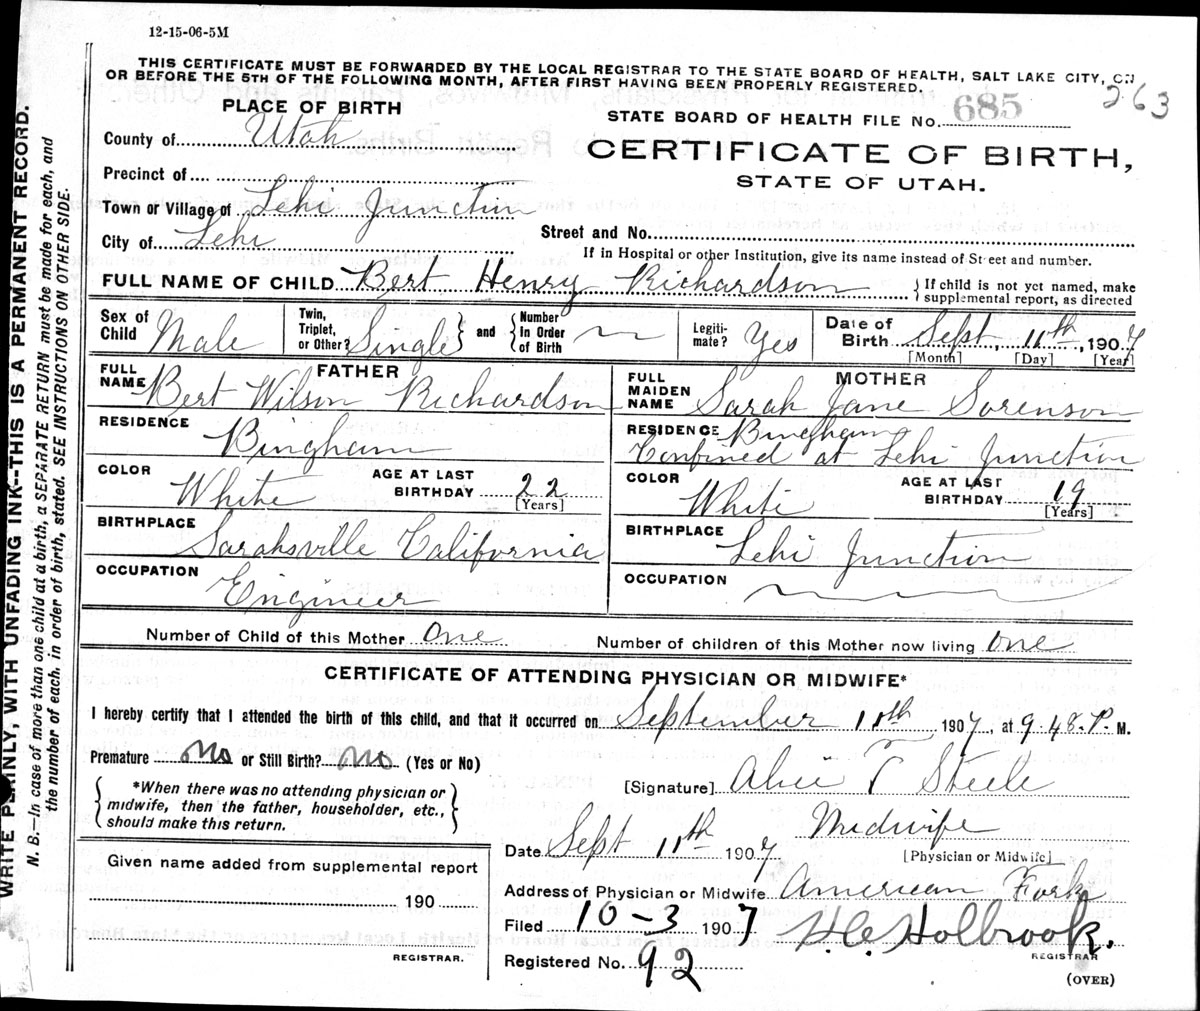 12-15-06-5M
THIS CERTIFICATE MUST BE FORWARDED BY THE LOCAL REGISTRAR TO THE STATE BOARD OF HEALTH, SALT LAKE CITY, ON
OR BEFORE THE 5TH OF THE FOLLOWING MONTH, AFTER FIRST HAVING BEEN PROPERLY REGISTERED.
263
PLACE OF BIRTH
STATE BOARD OF HEALTH FILE No. 685
County of Utah
CERTIFICATE OF BIRTH,
STATE OF UTAH.
Precinct of
Town or Village of Lehi Junction
City of Lehi
Street and No.
If in Hospital or other Institution, give its name instead of Street and number.
FULL NAME OF CHILD Bert Henry Richardson
If child is not yet named, make
supplemental report, as directed
Sex of Child Male
Twin, Triplet, or Other? Single and Number in Order of Birth
Legitimate? Yes
Date of Birth Sept, 11th, 1907
[Month] [Day] [Year]
FATHER
FULL NAME Bert Wilson Richardson
RESIDENCE Bingham
COLOR White
AGE AT LAST BIRTHDAY 22
[Years]
BIRTHPLACE Sarahsville California
OCCUPATION Engineer
MOTHER
FULL MAIDEN NAME Sarah Jane Sorenson
RESIDENCE Bingham
Confined at Lehi Junction
COLOR White
AGE AT LAST BIRTHDAY 19
[Years]
BIRTHPLACE Lehi Junction
OCCUPATION
Number of Child of this Mother One
Number of children of this Mother now living one
CERTIFICATE OF ATTENDING PHYSICIAN OR MIDWIFE*
I hereby certify that I attended the birth of this child, and that it occurred on September 11th, 1907, at 9.48.P.M.
Premature No or Still Birth? No (Yes or No)
*When there was no attending physician or
midwife, then the father, householder, etc.,
should make this return.
[Signature] Alice T Steele
Date Sept 11th 1907
Midwife
[Physician or Midwife]
Given name added from supplemental report
190
REGISTRAR.
Address of Physician or Midwife American Fork
Filed 10-3 1907 H.C. Holbrook.
REGISTRAR
Registered No. 92
(OVER)
WRITE PLAINLY, WITH UNFADING INK--THIS IS A PERMANENT RECORD.
N. B.--In case of more than one child at a birth, a SEPARATE RETURN must be made for each, and
the number of each, in order of birth, stated. SEE INSTRUCTIONS ON OTHER SIDE.